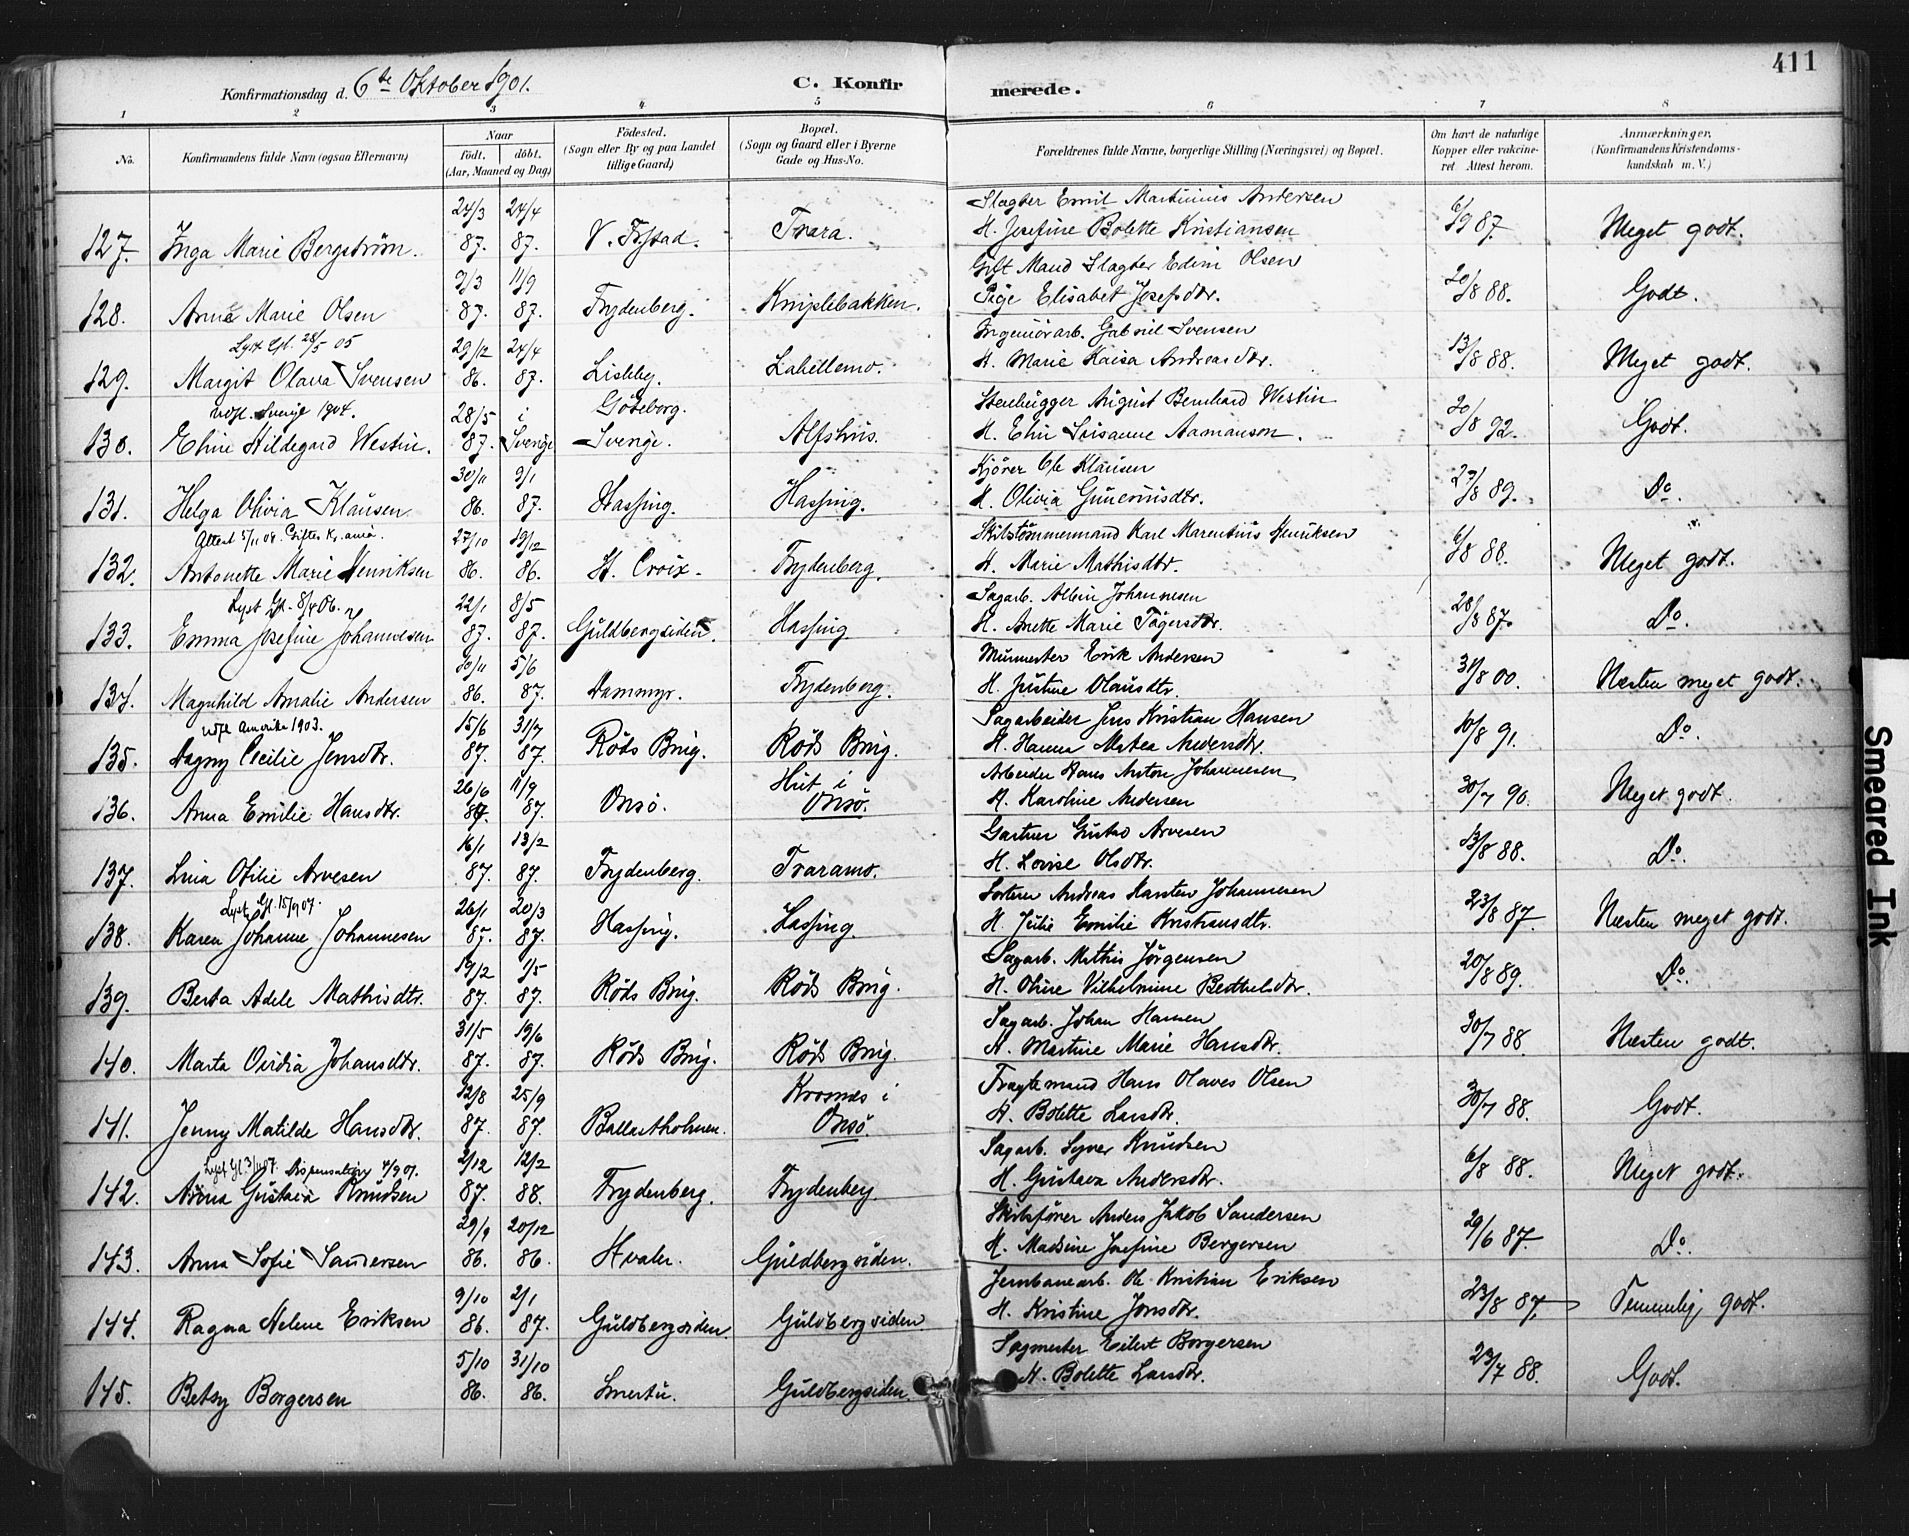 411
Konfirmationsdag d. 6te Oktober 1901.
C. Konfirmerede.
1 2 3 4 5 6 7 8
No.
Konfirmandens fulde Navn (ogsaa Efternavn)
Naar
födt. döbt.
(Aar, Maaned og Dag)
Födested.
(Sogn eller By og paa Landet
tillige Gaard)
Bopæl.
(Sogn og Gaard eller i Byerne
Gade og Hus-No.
Forældrenes fulde Navne, borgerlige Stilling (Næringsvei) og Bopæl.
Om havt de naturlige
Kopper eller vakcine-
ret Attest herom.
Anmærkninger.
(Konfirmandens Kristendoms-
kundskab m. V.)
24/3 24/4 Slagter Emil Martinius Andersen
127. Inga Marie Bergström. 87. 87. Trara. H. Josefine Bolette Kristiansen 6/9 87. Meget godt.
2/3 11/9 Gift Mand Slagter Edvin Olsen
128. Anna Marie Olsen 87. 87. Frydenberg. Kniplebakken. Pige Elisabet Josefsdtr. 20/8 88. Godt.
Lyst Gl. 28/5 05 29/12 24/4 Gabriel Svensen
129. Margit Olava Svensen 86. 87. Lisleby. Labellemo. H. Marie Kaisa Andreasdtr. 13/8 88. Meget godt.
udfl. Sverige 1904. 28/5 i Göteborg. Stenhugger August Bernhard Westin
130. Eline Hildegard Westin. 87. Sverige Sverige. Alfshus. H. Elin Susanne Aamanson. 20/8 92. Godt.
30/11 9/1 Kjörer Ole Klausen
131. Helga Olivia Klausen 86. 87. Hassing. Hassing. H. Olivia 27/8 89. Do.
Attest 5/11 09. Giftes Kr.ania. 27/10 19/12 Skibstömmermand Karl Marentius Henriksen
132. Antonette Marie Henriksen 86. 86. St. Croix. Frydenberg. H. Marie Mathisdtr. 6/8 88. Meget godt.
Lyst Gl. 8/4 06. 22/1 8/5 Sagarb. Albin Johannesen
133. Emma Josefine Johannesen 87. 87. Guldbergsiden. Hassing H. Anette Marie 28/8 87. Do.
30/11 5/6 Murmester Erik Andersen
134. Magnhild Amalie Andersen 86. 87. Dammyr. Frydenberg. H. Justine Olausdtr. 31/8 00. Næsten meget godt.
udfl. Amerika 1903. 15/6 31/7 Sagarbeider Jens Kristian Hansen
135. Dagny Cecilie Jensdtr. 87. 87. Röds Brug. Röds Brug. H. Hanna Matea Andersdtr. 10/8 91. Do.
26/6 11/9 Hut i Arbeider Hans Anton Johannesen
136. Anna Emilie Hansdtr 87. 87. Onsö. Onsö. H. Karoline Andersen 30/7 90. Meget godt.
16/1 13/2 Gartner Gustav Arvesen
137. Lina Otilie Arvesen 87. 87. Frydenberg. Traramo. H. Lovise Olsdtr. 13/8 88. Do.
Lyst Gl. 15/9 07. 26/1 20/3 Sorterer Andreas Karsten Johannesen
138. Karen Johanne Johannesen 87. 87. Hassing. Hassing. H. Julie Emilie Kristiansdtr. 23/8 87. Næsten meget godt.
19/2 1/5 Sagarb. Mathis Jörgensen
139. Berta Adele Mathisdtr. 87. 87. Röds Brug. Röds Brug. H. Oline Vilhelmine Berthelsdtr. 20/8 89. Do.
31/5 19/6 Sagarb. Johan Hansen
140. Marta Ovidia Johansdtr. 87. 87. Röds Brug. Röds Brug. H. Martine Marie Hansdtr. 30/7 88. Næsten godt.
12/8 25/9 Krosnes i Fragtemand Hans Olaves Olsen
141. Jenny Matilde Hansdtr. 87. 87. Ballastholmen. Onsö. H. Bolette Larsdtr. 30/7 88. Godt.
Lyst Gl. 3/11 07. Dispensation 4/9 07. 2/12 12/2 Sagarb. Syver Knudsen
142. Anna Gustava Knudsen 87. 88. Frydenberg. Frydenberg H. Gustava Andersdtr. 6/8 88. Meget godt.
29/9 20/12 Skibsförer Anders Jakob Sandersen
143. Anna Sofie Sandersen 86. 86. Hvaler. Guldbergsiden. H. Madsine Josefine Bergersen 29/6 87. Do.
9/10 2/1 Jernbanearb. Ole Kristian Eriksen
144. Ragna Helene Eriksen 86. 87. Guldbergsiden. Guldbergsiden H. Kristine Jonsdtr. 23/8 87. Temmelig godt.
5/10 31/10 Sagmester Eilert Borgersen
145. Betsy Borgersen 86. 86. Smertu. Guldbergsiden. H. Bolette Larsdtr. 23/7 88. Godt.
Smeared Ink